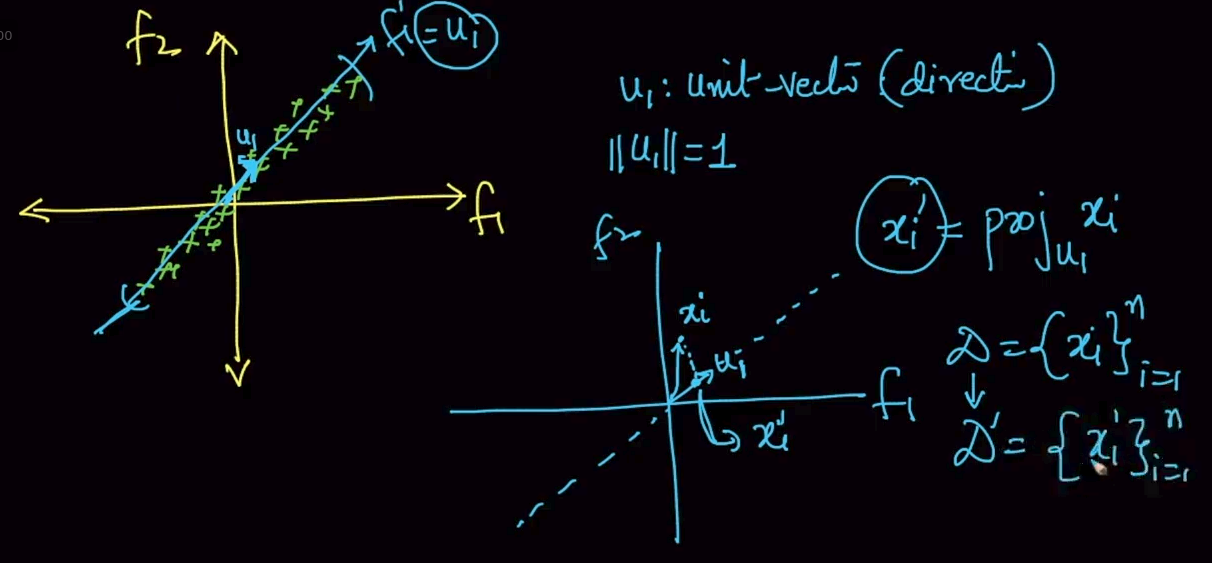 00
f₂
f₁' = u₁
u₁
f₁
u₁: unit-vecto (directi)
||u₁|| = 1
xᵢ' = proj_u₁ xᵢ
f₂
xᵢ
u₁
f₁
xᵢ'
D = {xᵢ}ⁿᵢ₌₁
↓
D' = {xᵢ'}ⁿᵢ₌₁